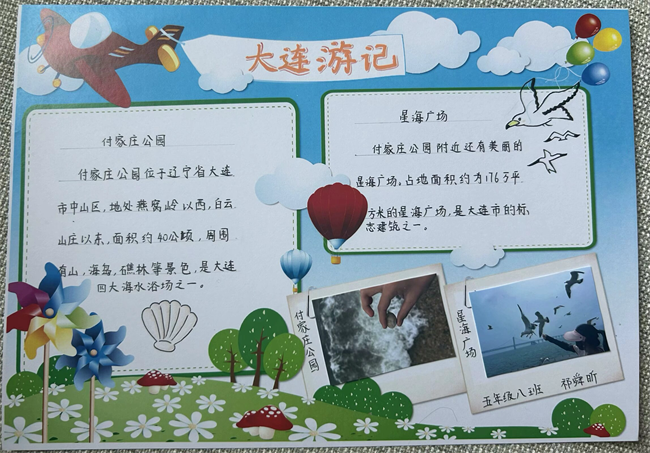 大连游记
付家庄公园
付家庄公园位于辽宁省大连
市中山区,地处燕窝岭以西,白云
山庄以东,面积约40公顷,周围
有山,海岛,礁林等景色,是大连
四大海水浴场之一。
星海广场
付家庄公园附近还有美丽的
星海广场,占地面积约为176万平
方米的星海广场,是大连市的标
志建筑之一。
付家庄公园
星海广场
五年级八班 祁舜昕